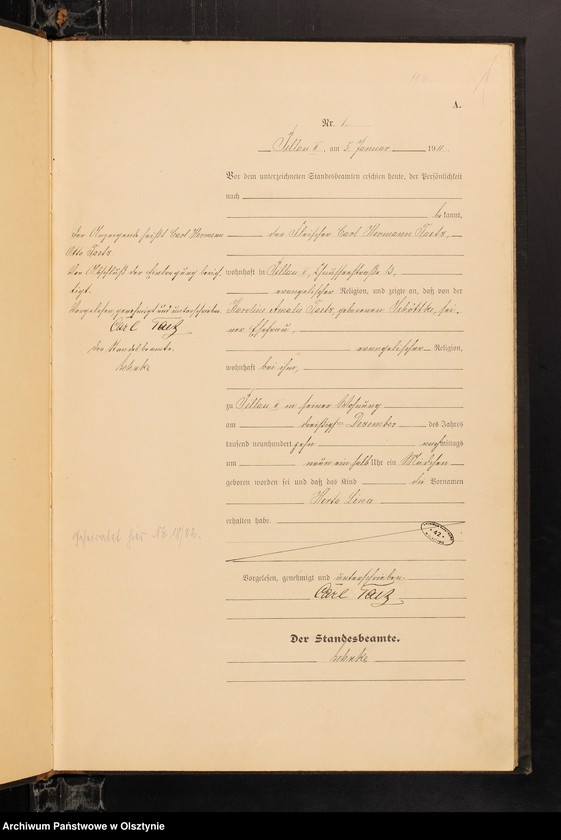 A.
Nr. 1
Pillau II, am 5. Januar 1911.
Vor dem unterzeichneten Standesbeamten erschien heute, der Persönlichkeit
nach
bekannt,
der Fleischer Carl Hermann Taetz,
wohnhaft in Pillau II, Chausseestraße 3,
evangelischer Religion, und zeigte an, daß von der
Karoline Amalie Taetz, geborenen, sei-
ner Ehefrau,
evangelischer Religion,
wohnhaft bei ihm,
zu Pillau II in seiner Wohnung
am dreißigsten Dezember des Jahres
tausend neunhundert zehn nachmittags
um neun ein halb Uhr ein Mädchen
geboren worden sei und daß das Kind die Vornamen
Herta Lina
erhalten habe.
Vorgelesen, genehmigt und unterschrieben.
Carl Taetz
Der Standesbeamte.
Der Anzeigende heißt Carl Hermann
Otto Taetz.
Vor Abschluß der Eintragung berich-
tigt.
Vorgelesen, genehmigt und unterschrieben.
Carl Taetz
Der Standesbeamte.
42
Archiwum Państwowe w Olsztynie